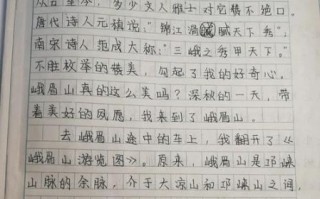 从古至今，多少文人雅士对它赞不绝口。
唐代诗人元稹说："锦江滑腻天下秀"，
南宋诗人范成大称："三峨之秀甲天下。"
不胜枚举的赞美，勾起了我的好奇心。
峨眉山真的这么美吗？深秋的一天，带
着美好的夙愿，我来到了峨眉山。
去峨眉山途中的车上，我翻开了《
峨眉山游览图》。原来，峨眉山是邛崃
山脉的余脉，介于大凉山和邛崃山之间